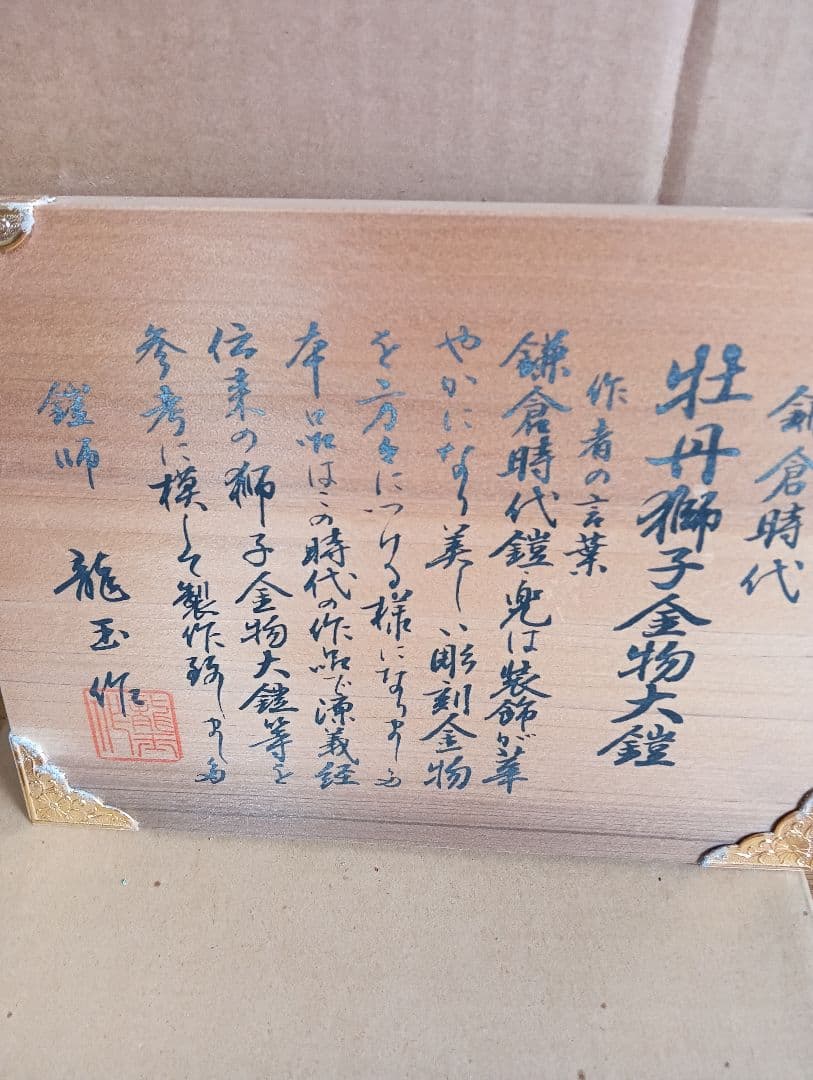 鎌倉時代
牡丹獅子金物大鎧
作者の言葉
鎌倉時代鎧、兜は装飾が華
やかになり美しい彫刻金物
を方々につける様になりました
本品はこの時代の作品で源義経
伝来の獅子金物大鎧等を
参考に模して製作致しました
鎧師 龍玉作